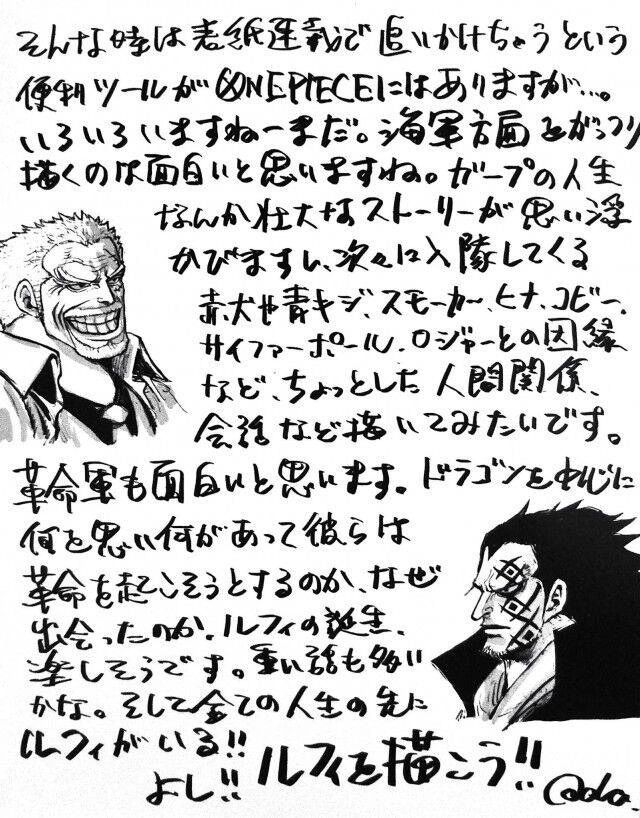 そんな時は表紙連載で追いかけちゃうという
便利ツールがONE PIECEにはありますが…。
いろいろいますねーまだ。海軍方面をがっつり
描くのは面白いと思いますね。ガープの人生
なんか壮大なストーリーが思い浮
かびますし、次々に入隊してくる
赤犬や青キジ、スモーカー、ヒナ、コビー、
サイファーポール、ロジャーとの因縁
など、ちょっとした人間関係、
会話など描いてみたいです。
革命軍も面白いと思います。ドラゴンをはじめに
何を思い何があって彼らは
革命を起こそうとするのか、なぜ
出会ったのか、ルフィの誕生、
楽しそうです。重い話も多い
かな。そして全ての人生の先に
ルフィがいる!!
よし!! ルフィを描こう!!